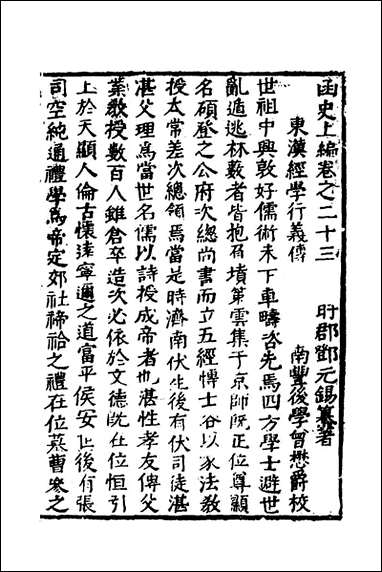 函史上編卷之二十三
盱郡鄧元錫纂著
東漢經學行義傳
南豐後學曾懋爵校
世祖中興敦好儒術未下車疇咨先焉四方學士避世
亂遁逃林藪者皆抱召墳策雲集于京師既正位尊顯
名碩登之公府次總尚書而立五經博士各以家法教
授太常差次總領焉當是時濟南伏生後有伏司徒湛
湛父理爲當世名儒以詩授成帝者也湛性孝友傳父
業教授數百人雖倉卒造次必依於文德既在位恒引
上於天顯人倫古懷遠寧邇之道富平侯安世後有張
司空純通禮學爲帝定郊社禘祫之禮在位慕曹參之